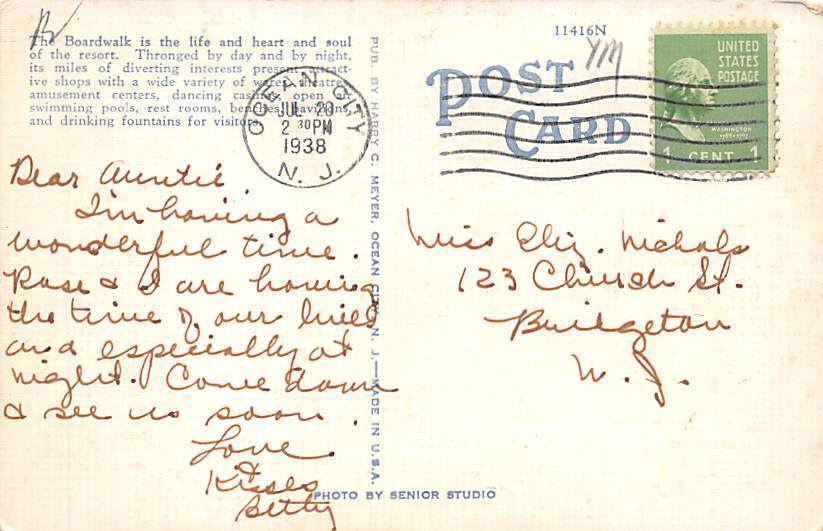 The Boardwalk is the life and heart and soul
of the resort. Thronged by day and by night,
its miles of diverting interests present attract-
ive shops with a wide variety of wares, theatres,
amusement centers, dancing casino, open air
swimming pools, rest rooms, benches, pavilions,
and drinking fountains for visitors.
11416N
POST
CARD
UNITED
STATES
POSTAGE
WASHINGTON
1 CENT 1
OCEAN CITY
JUL 20
2 30 PM
1938
N. J.
PUB. BY HARRY C. MEYER, OCEAN CITY, N. J.—MADE IN U.S.A.
Dear Auntie,
I'm having a
wonderful time.
Rose & I are having
the time of our lives
and especially at
night. Come down
& see us soon.
Love
&
Kisses
Betty
Miss Eliz. Nichols
123 Church St.
Bridgeton
N. J.
PHOTO BY SENIOR STUDIO